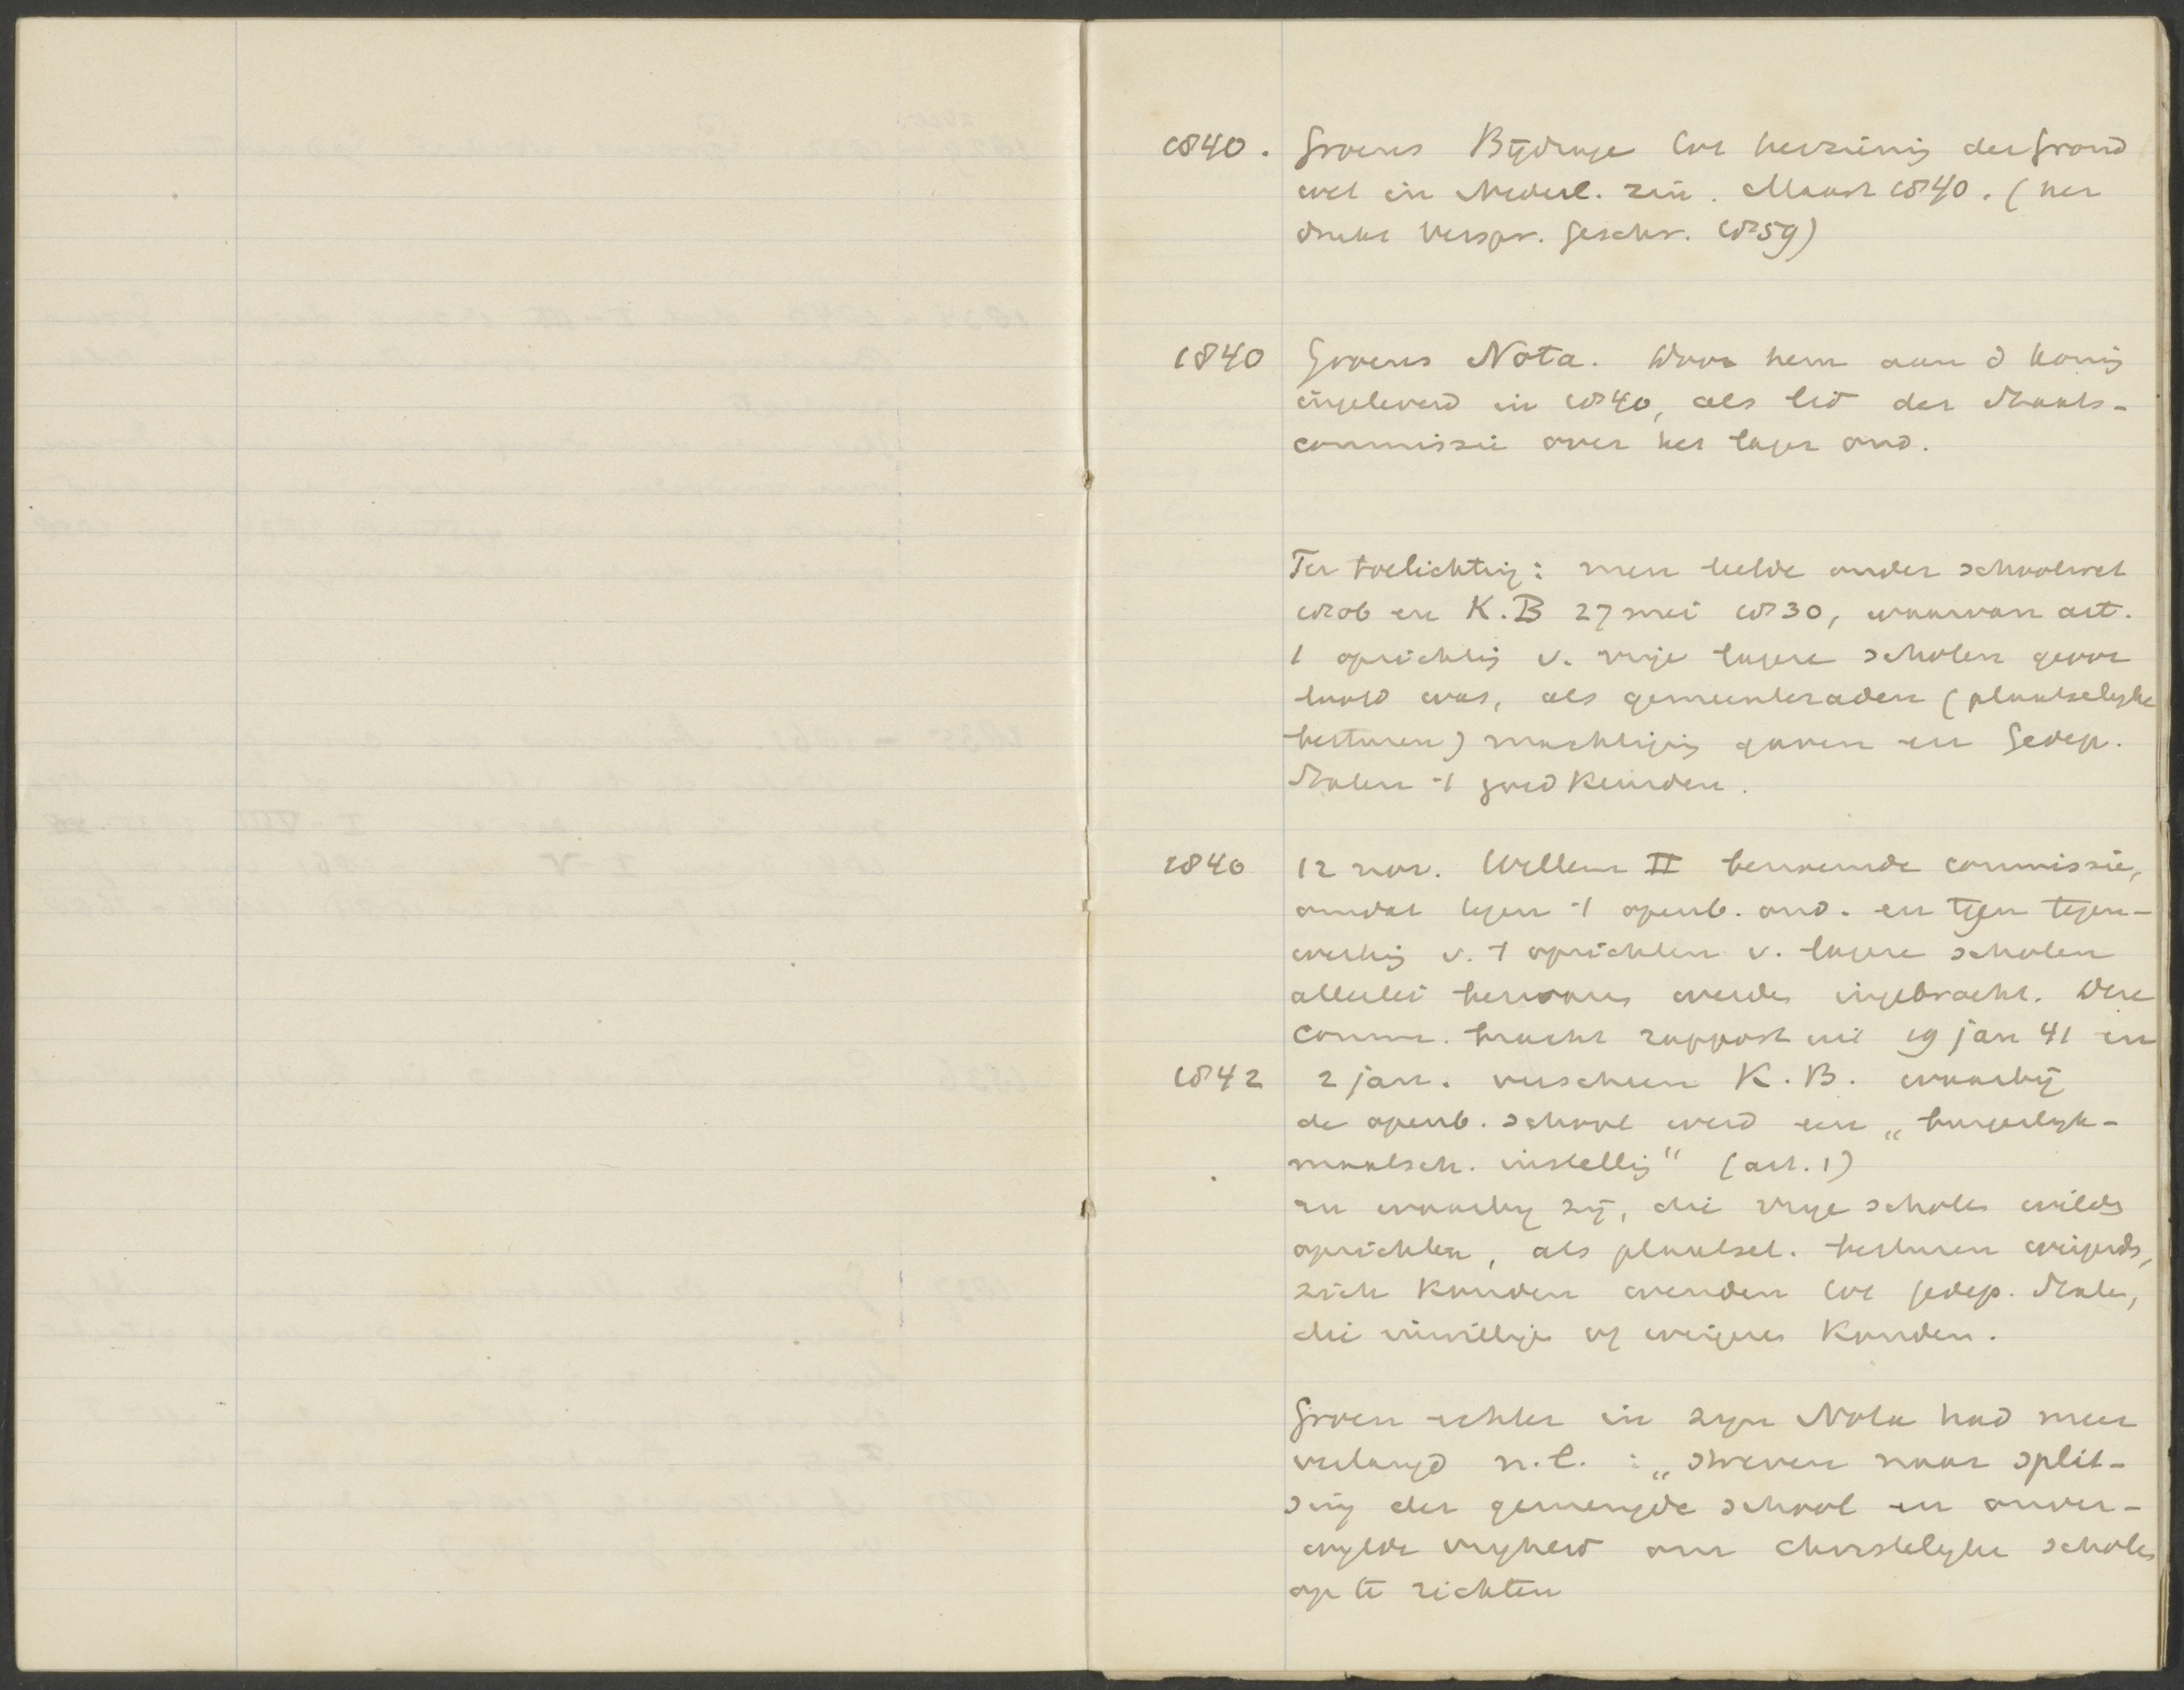 1840. Groens Bijdrage tot herziening der Grond
wet in Nederl. zin. Maart 1840. (her
drukt Verspr. Geschr. 1859)
1840 Groens Nota. Door hem aan d koning
ingeleverd in 1840, als lid der Staats-
commissie over het lager ond.
Ter toelichting: men leefde onder schoolwet
1806 en K.B 27 mei 1830, waarvan art.
1 oprichting v. vrije lagere scholen geoor
loofd was, als gemeenteraden (plaatselijke
besturen) machtiging gaven en Gedep.
Staten 't goedkeurden.
1840 12 nov. Willem II benoemde commissie,
omdat tegen 't openb. ond. en tegen tegen-
werking v. 't oprichten v. lagere scholen
allerlei bezwaren werden ingebracht. Deze
Comm. bracht rapport uit 19 jan 41 en
1842 2 jan. verscheen K.B. waarbij
de openb. school werd een „burgerlijk-
maatsch. instelling" (art. 1)
en waarbij zij, die vrije scholen wilden
oprichten, als plaatsel. besturen weigerden,
zich konden wenden tot gedep. Staten,
die inwilligen of weigeren konden.
Groen echter in zijn Nota had meer
verlangd n.l. : „streven naar split-
sing der gemengde school en onver-
wijlde vrijheid om christelijke scholen
op te richten